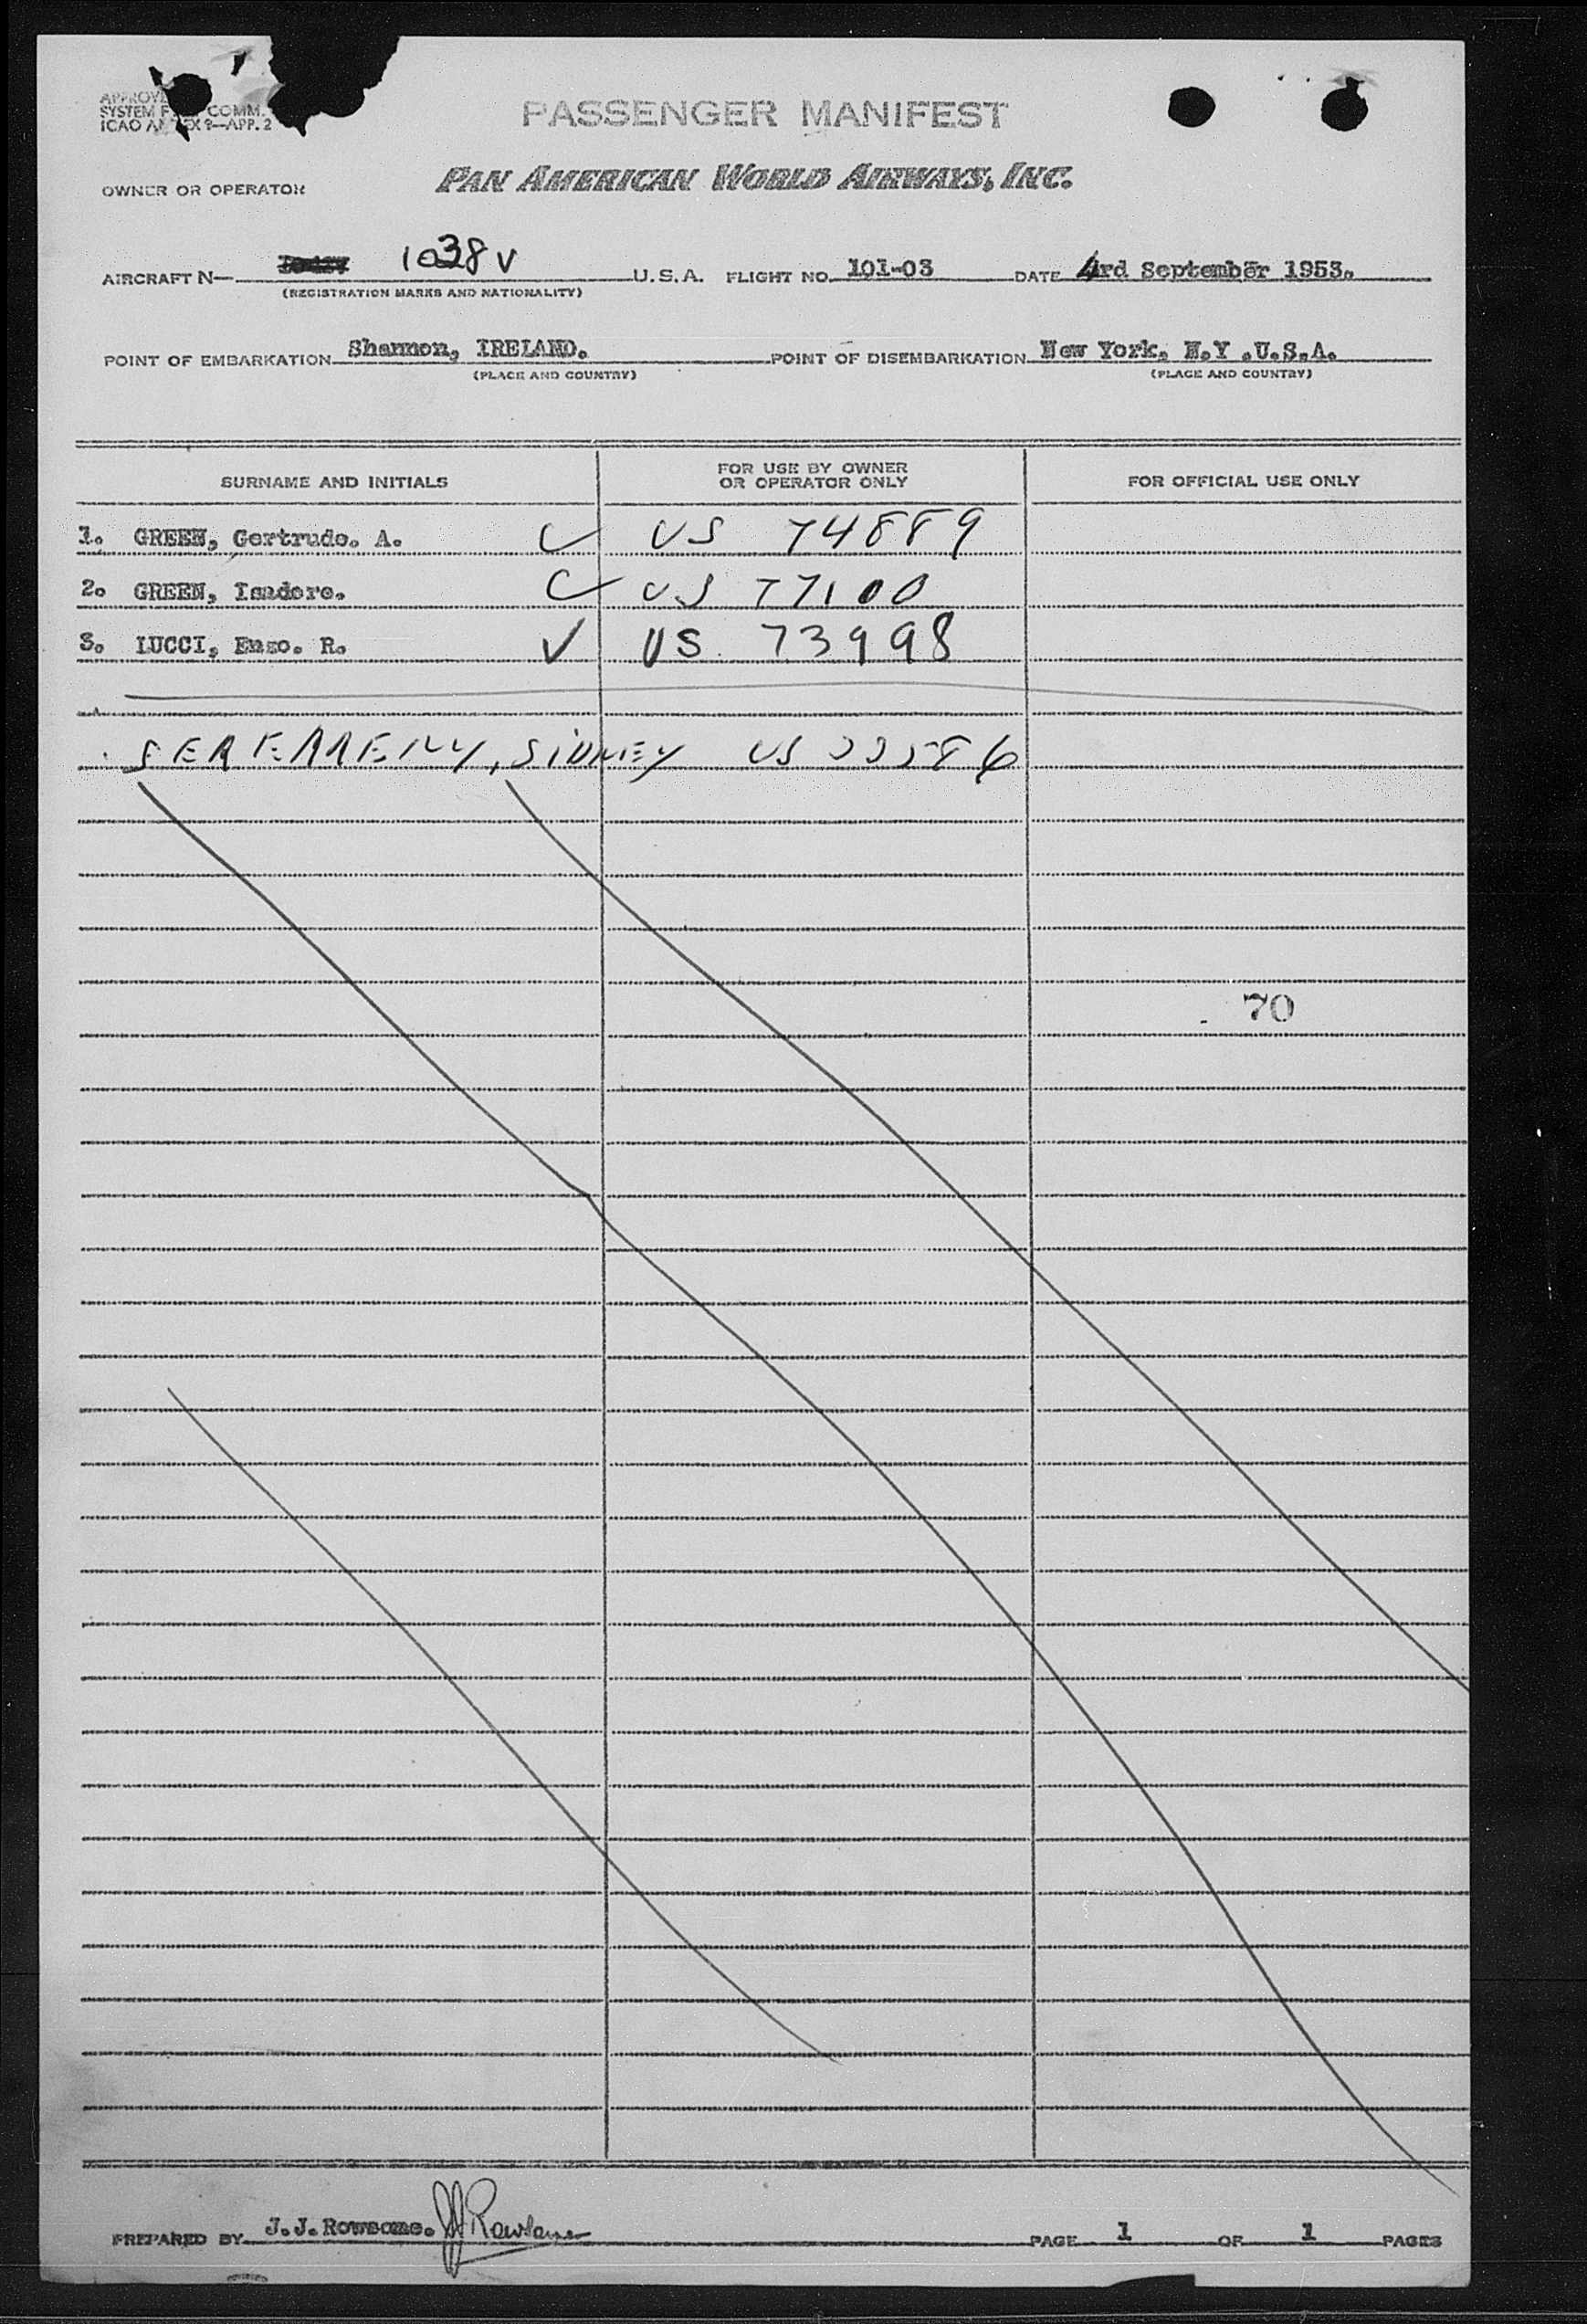 SYSTEM F COMM.
ICAO 9—APP. 2
PASSENGER MANIFEST
OWNER OR OPERATOR PAN AMERICAN WORLD AIRWAYS, INC.
AIRCRAFT N— 1038V U.S.A. FLIGHT NO. 101-03 DATE 4rd September 1953.
(REGISTRATION MARKS AND NATIONALITY)
POINT OF EMBARKATION Shannon, IRELAND. POINT OF DISEMBARKATION New York. N.Y .U.S.A.
(PLACE AND COUNTRY) (PLACE AND COUNTRY)
SURNAME AND INITIALS FOR USE BY OWNER OR OPERATOR ONLY FOR OFFICIAL USE ONLY
1. GREEN, Gertrude. A. US 74889
2. GREEN, Isadore. US 77100
3. LUCCI, Enzo. R. US 73998
SIDNEY US
70
PREPARED BY J.J.Rowsome. PAGE 1 OF 1 PAGES